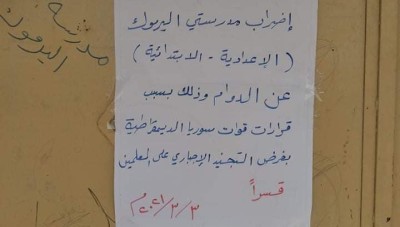 إضراب مدرستي اليرموك
( الإعدادية - الابتدائية )
عن الدوام وذلك بسبب
قرارات قوات سوريا الديمقراطية
بفرض التجنيد الإجباري على المعلمين
قسراً
٢٠٢١/٣/٣م
مدرسة
اليرموك